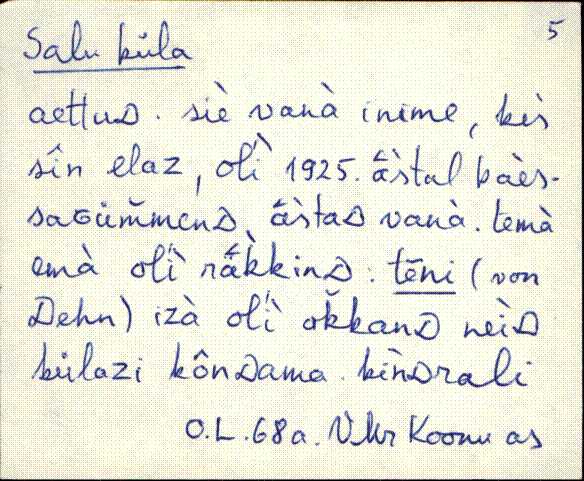 5
Salu kùla
aettuᴅ. siè vanà inime, kès
sîn elaz, olì 1925. ǟstal kaès-
saɢùm̆menᴅ, ǟstaᴅ vanà. temà
emà olì rǟkkinᴅ: tēni (von
Dehn) izà olì ok̆kanᴅ neìᴅ
kùlazi kônᴅama. kìnᴅrali
O.L. 68 a. V.Mr Koonu as